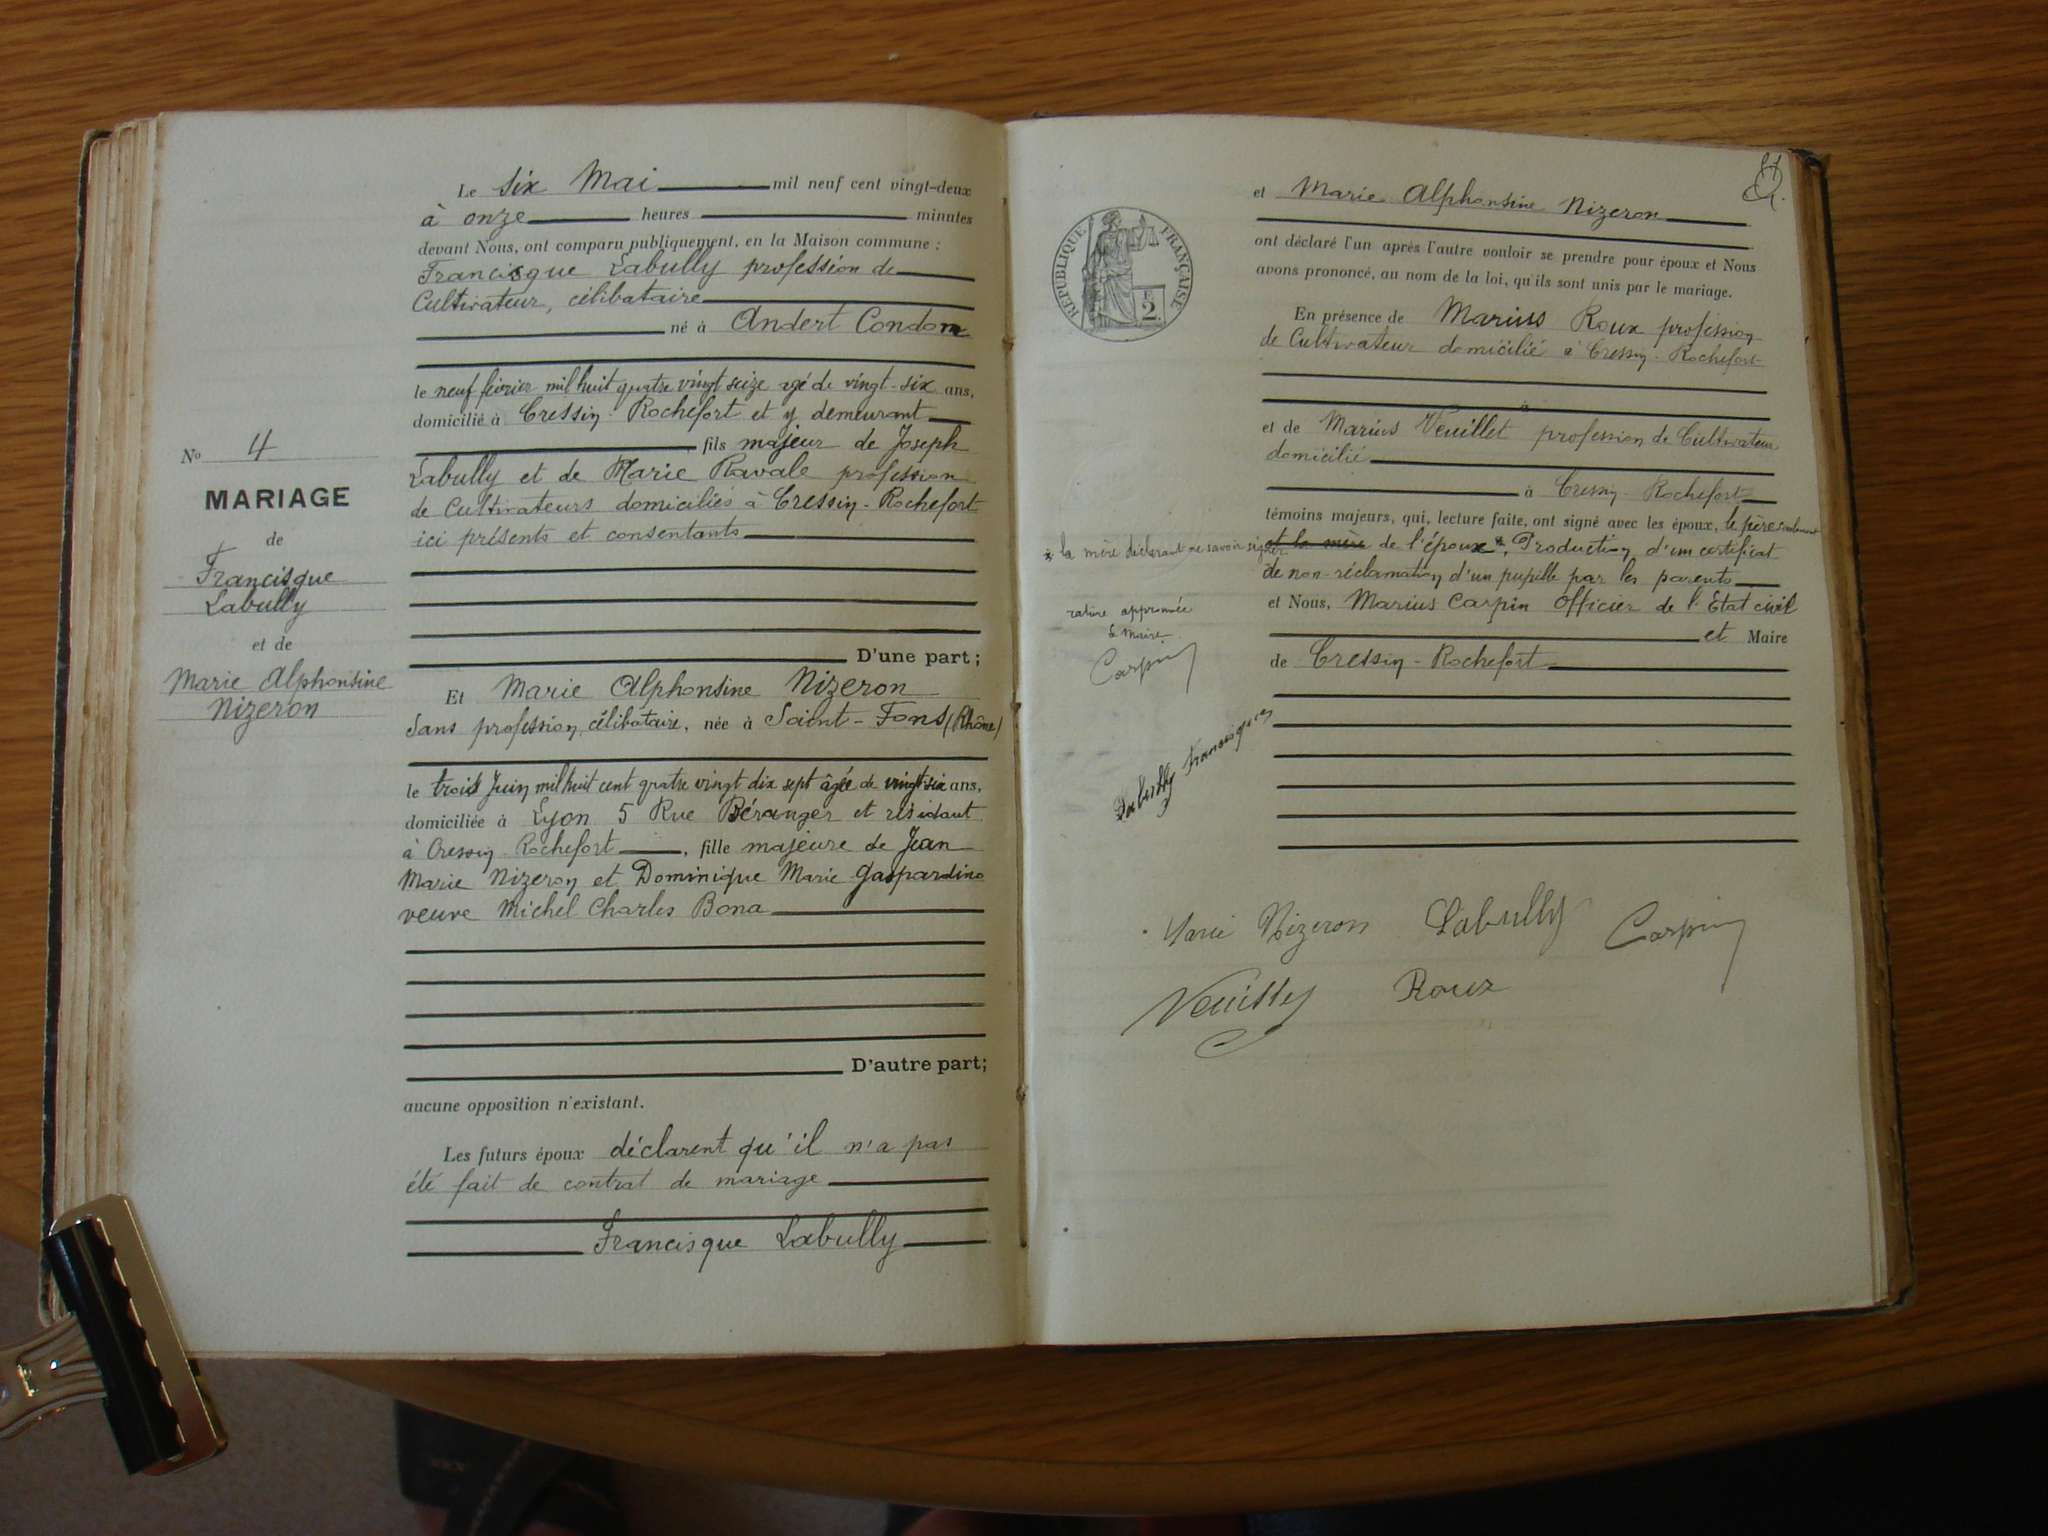 Le six Mai mil neuf cent vingt-deux
à onze heures minutes
devant Nous, ont comparu publiquement, en la Maison commune :
Francisque Labully profession de
Cultivateur, célibataire
né à Andert Condon
le neuf février mil huit quatre vingt seize agé de vingt-six ans,
domicilié à Cressin-Rochefort et y demeurant
fils majeur de Joseph
Labully et de Marie Ravale profession
de Cultivateurs domiciliés à Cressin-Rochefort
ici présents et consentants
D'une part ;
No 4
MARIAGE
de
Francisque
Labully
et de
Marie Alphonsine
Nizeron
Et Marie Alphonsine Nizeron
Sans profession, célibataire, née à Saint-Fons (Rhône)
le trois Juin mil huit cent quatre vingt dix sept âgée de vingt-six ans,
domiciliée à Lyon 5 Rue Béranger et résidant
à Cressin-Rochefort, fille majeure de Jean
Marie Nizeron et Dominique Marie Gaspardino
veuve Michel Charles Bona
D'autre part ;
aucune opposition n'existant.
Les futurs époux déclarent qu'il n'a pas
été fait de contrat de mariage
Francisque Labully
et Marie Alphonsine Nizeron
ont déclaré l'un après l'autre vouloir se prendre pour époux et Nous
avons prononcé, au nom de la loi, qu'ils sont unis par le mariage.
RÉPUBLIQUE FRANÇAISE
2
En présence de Marius Roux profession
de Cultivateur domicilié à Cressin-Rochefort
et de Marius Veuillet profession de Cultivateur
domicilié
à Cressin-Rochefort
témoins majeurs, qui, lecture faite, ont signé avec les époux, le père seulement
et la mère de l'époux *, Production d'un certificat
* la mère déclarant ne savoir signer
de non-réclamation d'un pupille par les parents
et Nous, Marius Carpin Officier de l'Etat civil
et Maire
de Cressin-Rochefort
rature approuvée
le Maire
Carpin
Labully Francisque
Marie Nizeron Labully Carpin
Roux